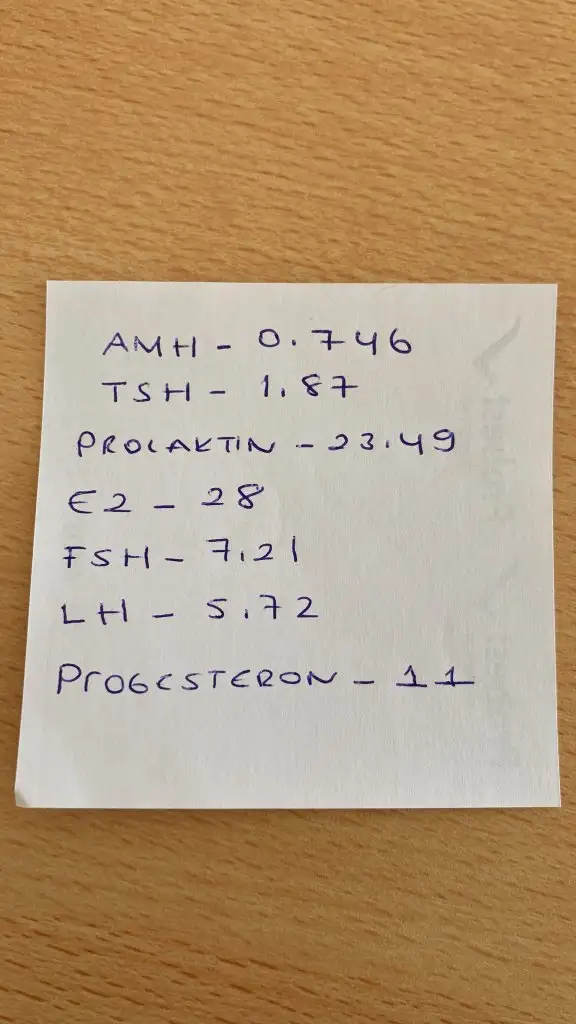 AMH - 0.746
TSH - 1.87
PROLAKTIN - 23.49
E2 - 28
FSH - 7.21
LH - 5.72
PROGESTERON - 11